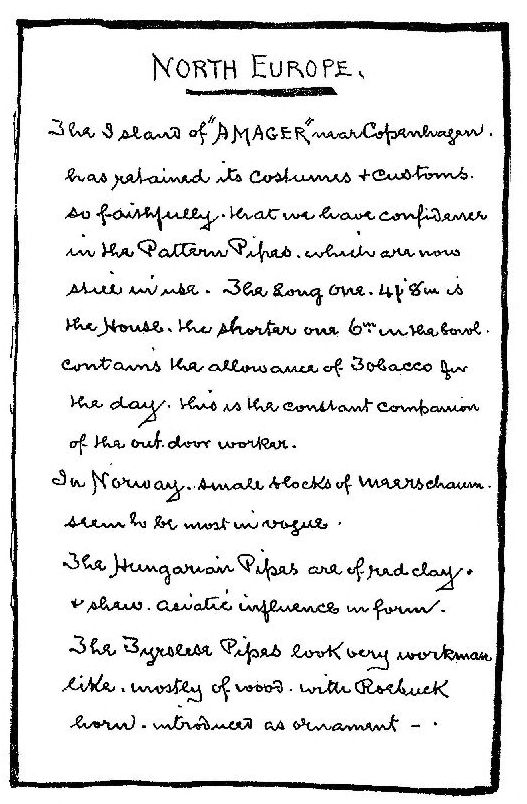 NORTH EUROPE.
The Island of "AMAGER," near Copenhagen.
has retained its costumes + customs.
so faithfully. that we have confidence
in the Pattern Pipes. which are now
still in use. The Long one. 4ft 8in is
the House. the shorter one 6in in the bowl.
contains the allowance of Tobacco for
the day. this is the constant companion
of the out. door worker.
In Norway. small blocks of Meerschaum.
seem to be most in vogue.
The Hungarian Pipes are of red clay.
+ shew. asiatic influence in form.
The Tyrolese Pipes look very workman
like. mostly of wood. with Roebuck
horn. introduced as ornament – .